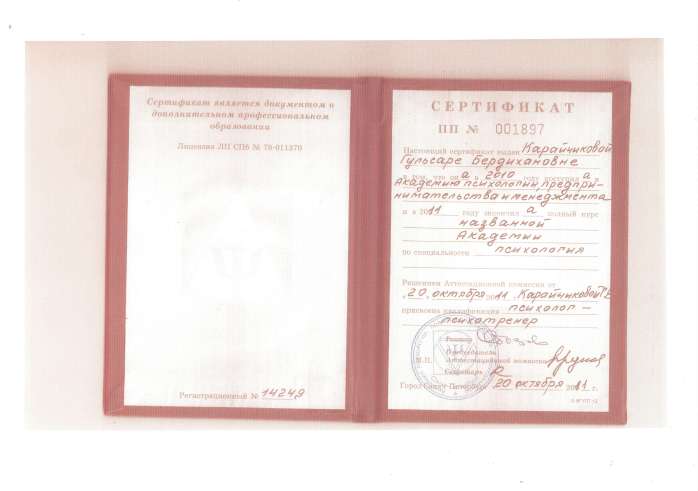 Сертификат является документом о
дополнительном профессиональном
образовании
Лицензия ЛП СПб № ТБ-011370
Регистрационный № 14249
СЕРТИФИКАТ
ПП № 001897
Настоящий сертификат выдан Карайчиковой
Гульсаре Бердихановне
в том, что он а в 2010 году поступил а в
Академию психологии, предпри-
нимательства и менеджмента
и в 2011 году окончил а полный курс
названной
Академии
по специальности психология
Решением Аттестационной комиссии от
„20„ октября 2011 Карайчиковой Г.Б.
присвоена квалификация психолог –
психотренер
Ректор
Председатель
М.П. Аттестационной комиссии
Секретарь
Город Санкт-Петербург 20 октября 2011 г.